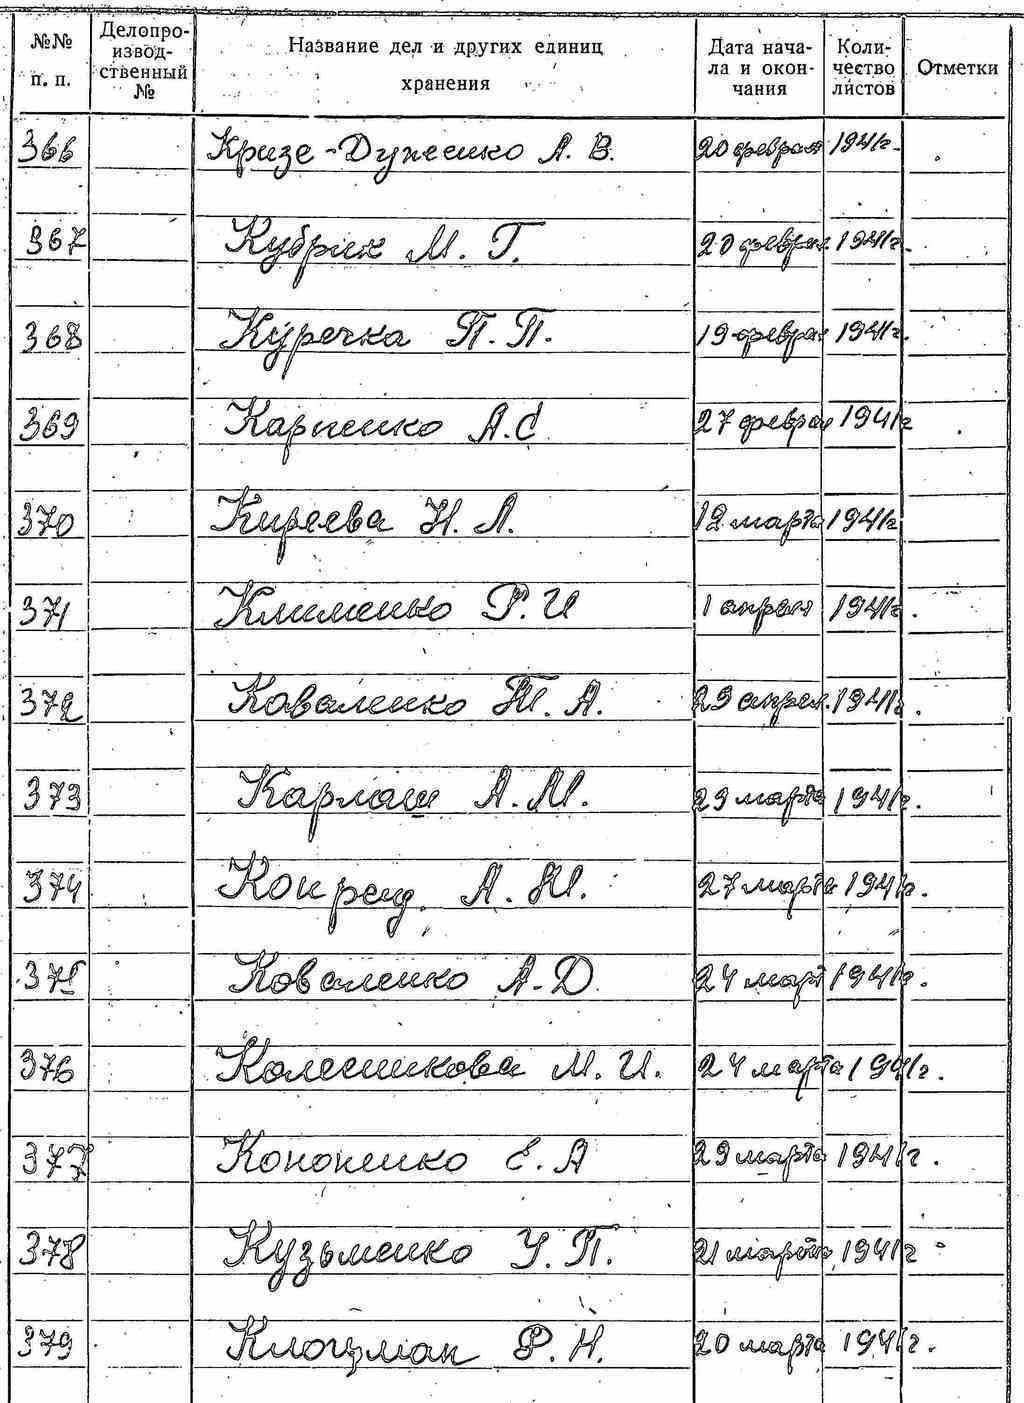 №№ п. п. Делопроизводственный № Название дел и других единиц хранения Дата начала и окончания Количество листов Отметки
366 Кризе-Думенко А. В. 20 феврал 1941г.
367 Кубрик М. Г. 20 феврал 1941г.
368 Куречка П. П. 19 феврал 1941г.
369 Карпенко А. С 27 феврал 1941г
370 Киреева Н. Л. 12 марта 1941г
371 Клименко Р. И 1 апреля 1941г.
372 Коваленко Т. А. 29 апрел. 1941г.
373 Карлаш А. М. 29 марта 1941г.
374 А. 27 марта 1941г.
375 Коваленко А. Д. 24 март 1941г.
376 Колесникова М. И. 24 марта 1941г.
377 Кононенко Е. А 29 марта 1941г.
378 Кузьменко У. П. 21 марта 1941г
379 Клоцман Р. Н. 20 марта 1941г.